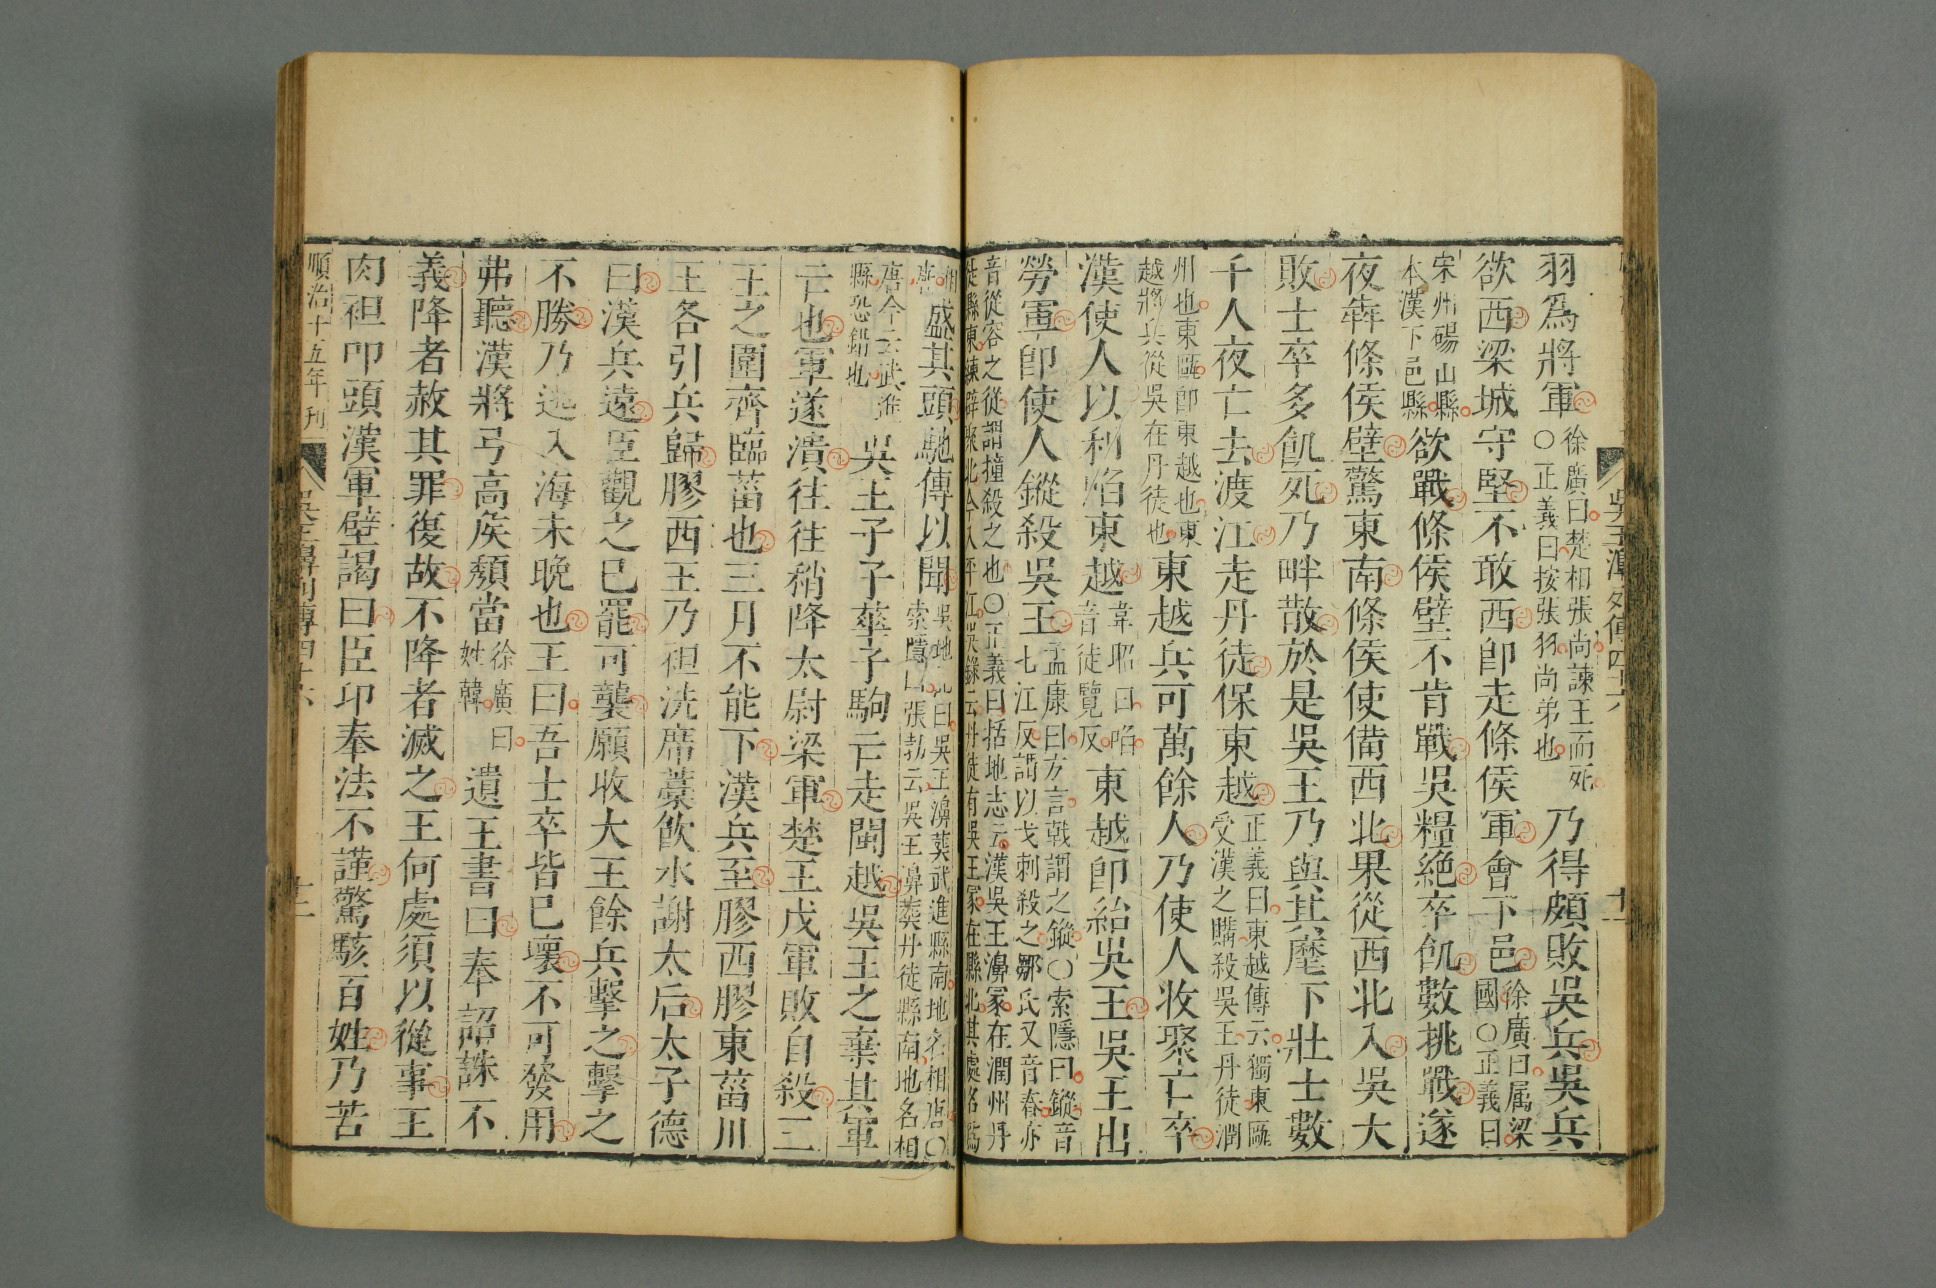 羽爲將軍徐廣曰楚相張尚諫王而死○正義曰按張羽尚弟也乃得頗敗吳兵吳兵
欲西梁城守堅不敢西即走條侯軍會下邑徐廣曰属梁國○正義曰
宋州碭山縣本漢下邑縣欲戰條侯壁不肯戰吳糧絶卒飢數挑戰遂
夜犇條侯壁驚東南條侯使備西北果從西北入吳大
敗士卒多飢死乃畔散於是吳王乃與其麾下壯士數
千人夜亡去渡江走丹徒保東越正義曰東越傳云獨東甌受漢之購殺吳王丹徒潤
州也東甌即東越也東越將兵從吳在丹徒也東越兵可萬餘人乃使人收聚亡卒
漢使人以利啗東越韋昭曰啗音徒覽反東越即紿吳王吳王出
勞軍即使人鏦殺吳王孟康曰方言戟謂之鏦○索隱曰鏦音七江反謂以戈刺殺之鄒氏又音舂亦
音從容之從謂撞殺之也○正義曰括地志云漢吳王濞冢在潤州丹徒縣東練壁聚北今入于江吳錄云丹徒有吳王冢在縣北其處名爲
相唐盛其頭馳傳以聞吳地記曰吳王濞葬武進縣南地名相唐○索隱曰張勃云吳王濞葬丹徒縣南地名相
唐今云武進縣恐錯也吳王子子華子駒亡走閩越吳王之棄其軍
亡也軍遂潰往往稍降太尉梁軍楚王戊軍敗自殺三
王之圍齊臨菑也三月不能下漢兵至膠西膠東菑川
王各引兵歸膠西王乃袒洗席藁飲水謝太后太子德
曰漢兵遠臣觀之已罷可襲願收大王餘兵擊之擊之
不勝乃逃入海未晚也王曰吾士卒皆已壞不可發用
弗聽漢將弓高侯頹當徐廣曰姓韓遺王書曰奉詔誅不
義降者赦其罪復故不降者滅之王何處須以從事王
肉袒叩頭漢軍壁謁曰臣卬奉法不謹驚駭百姓乃苦
順治十五年刊
吳王濞列傳四十六
十二
吳王濞列傳四十六
十一